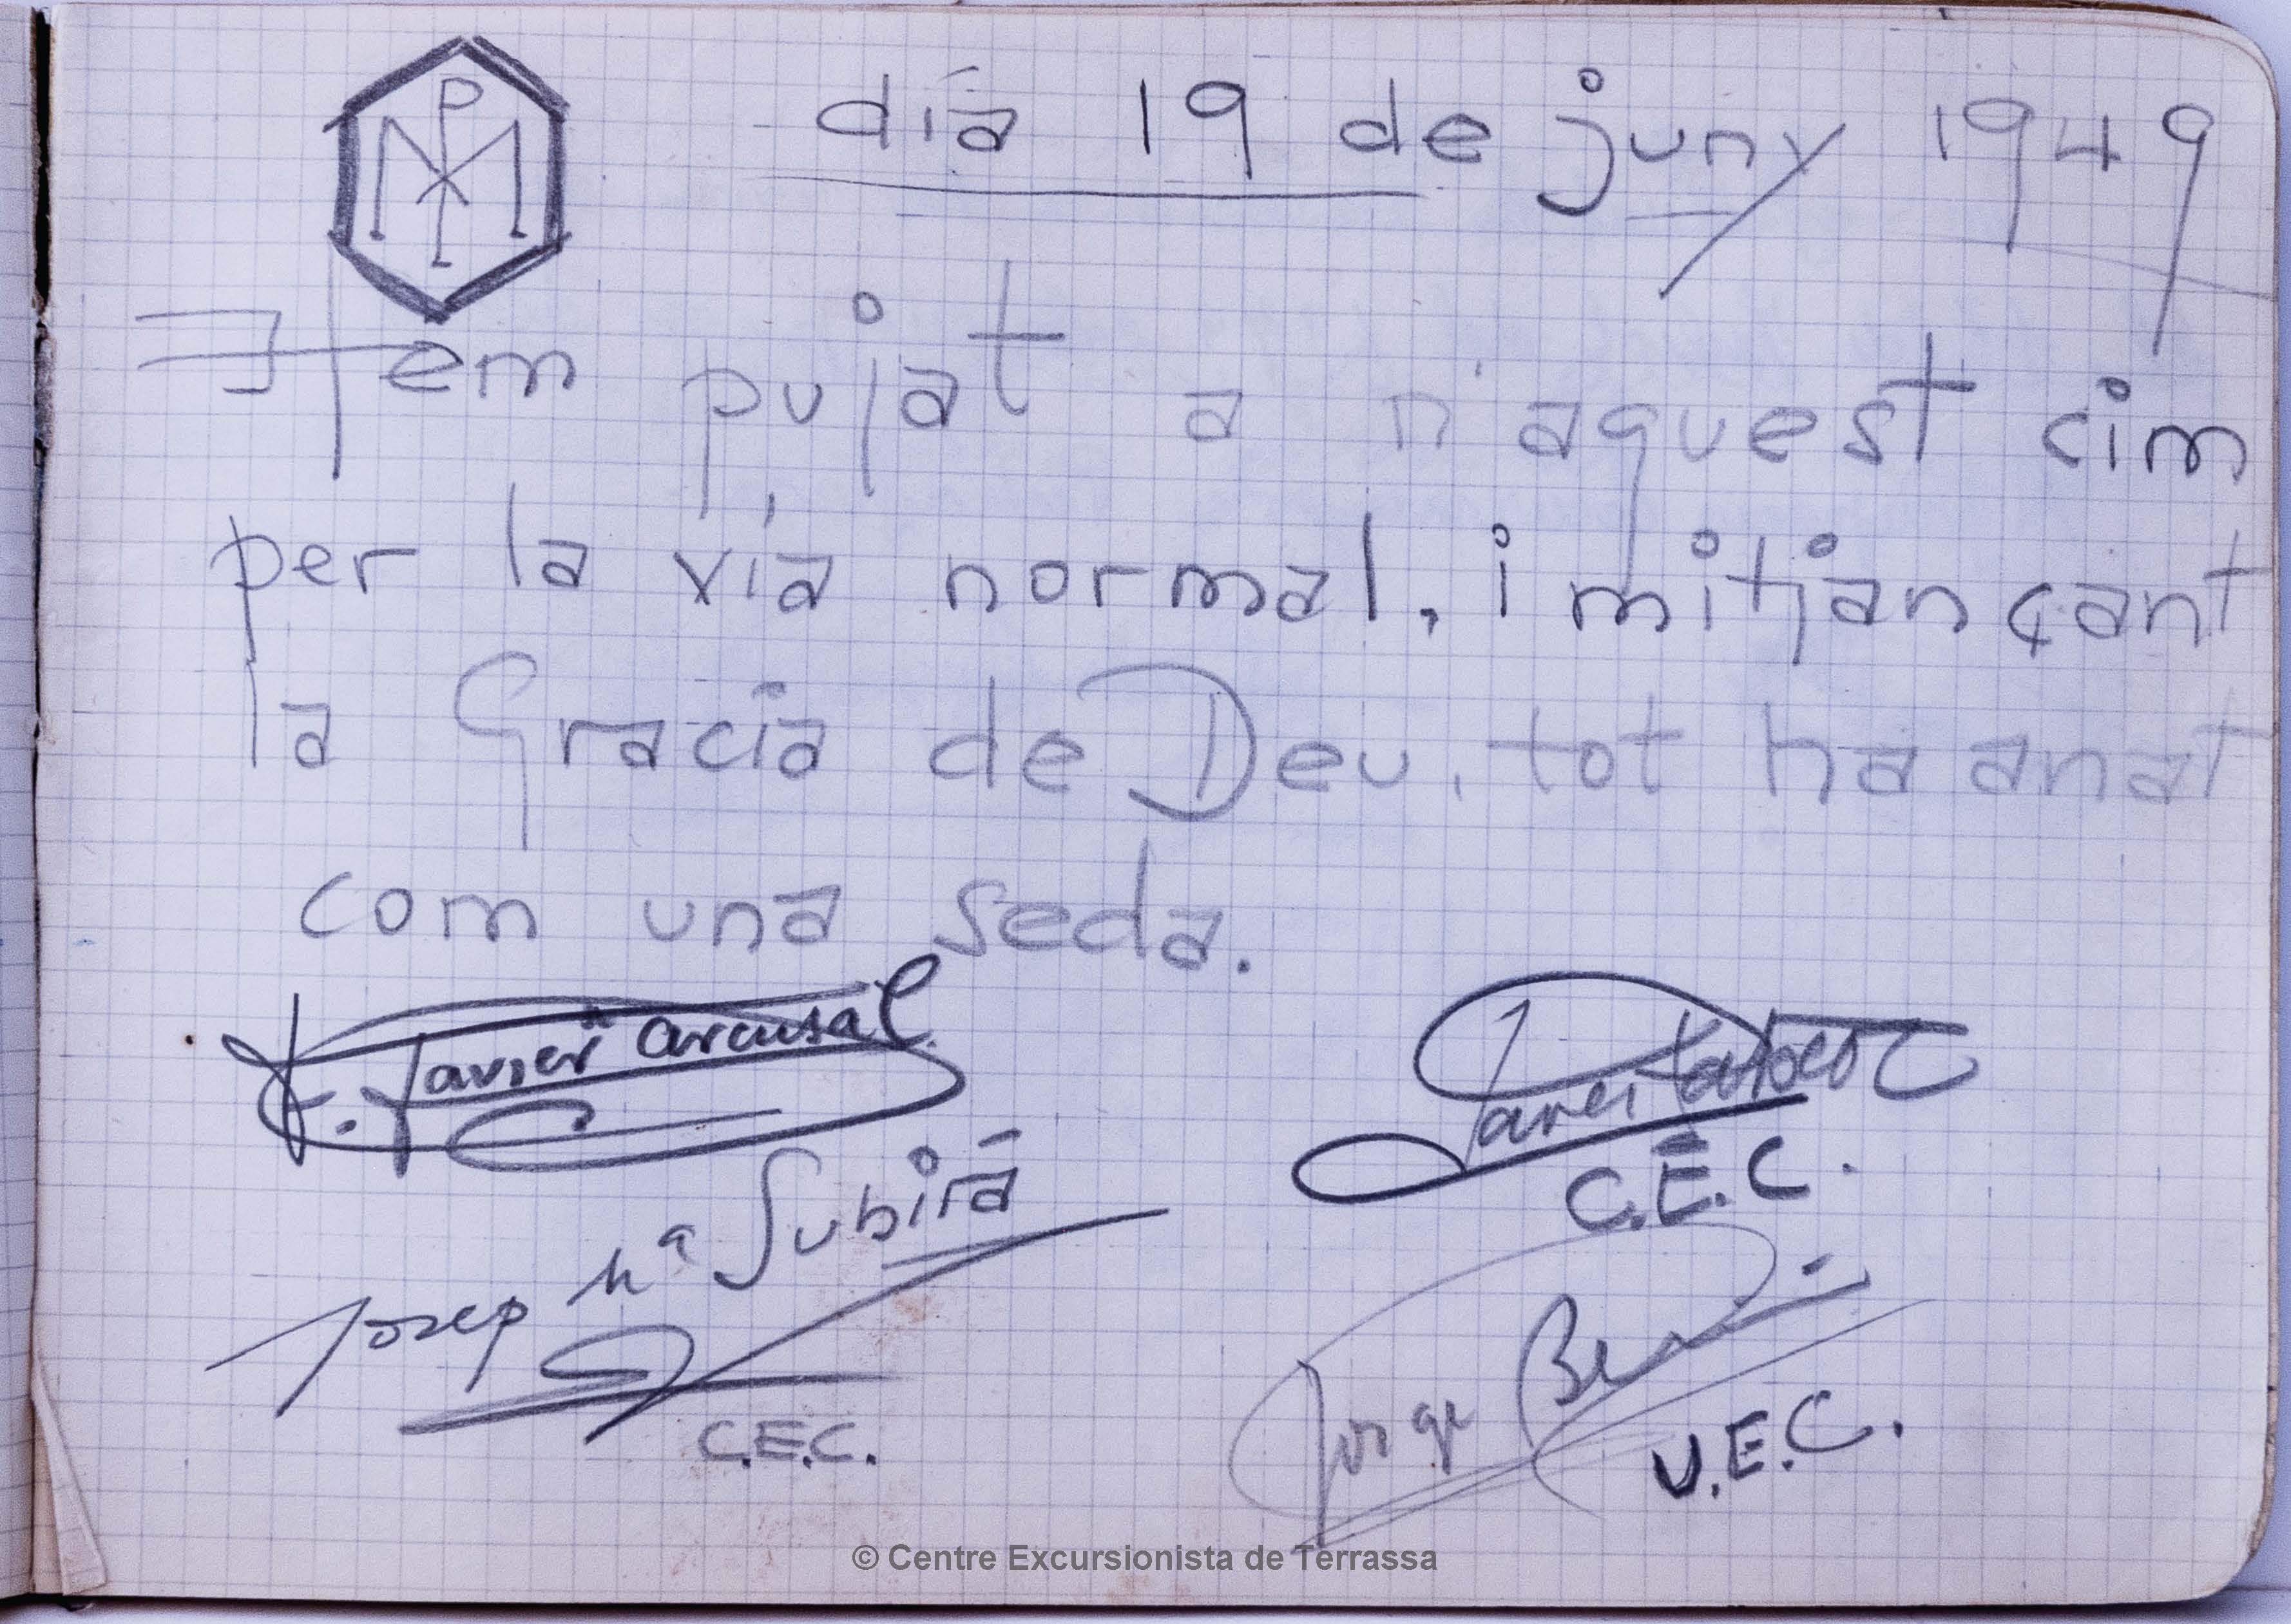 día 19 de juny 1949
Hem pujat a n'aquest cim
per la vía normal, i mitjançant
la Gracia de Deu, tot ha anat
com una seda.
F. Javier Arcusa
Josep Mª Subirá
C.E.C.
C.E.C.
Jorge
U.E.C.
© Centre Excursionista de Terrassa